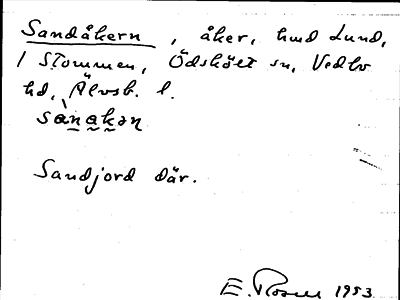 Sandåkern, åker, hmd Lund,
1 Stommen, Ödskölt sn, Vedbo
hd, Älvsb. l.
sànakən
Sandjord där.
E. Rosen 1953